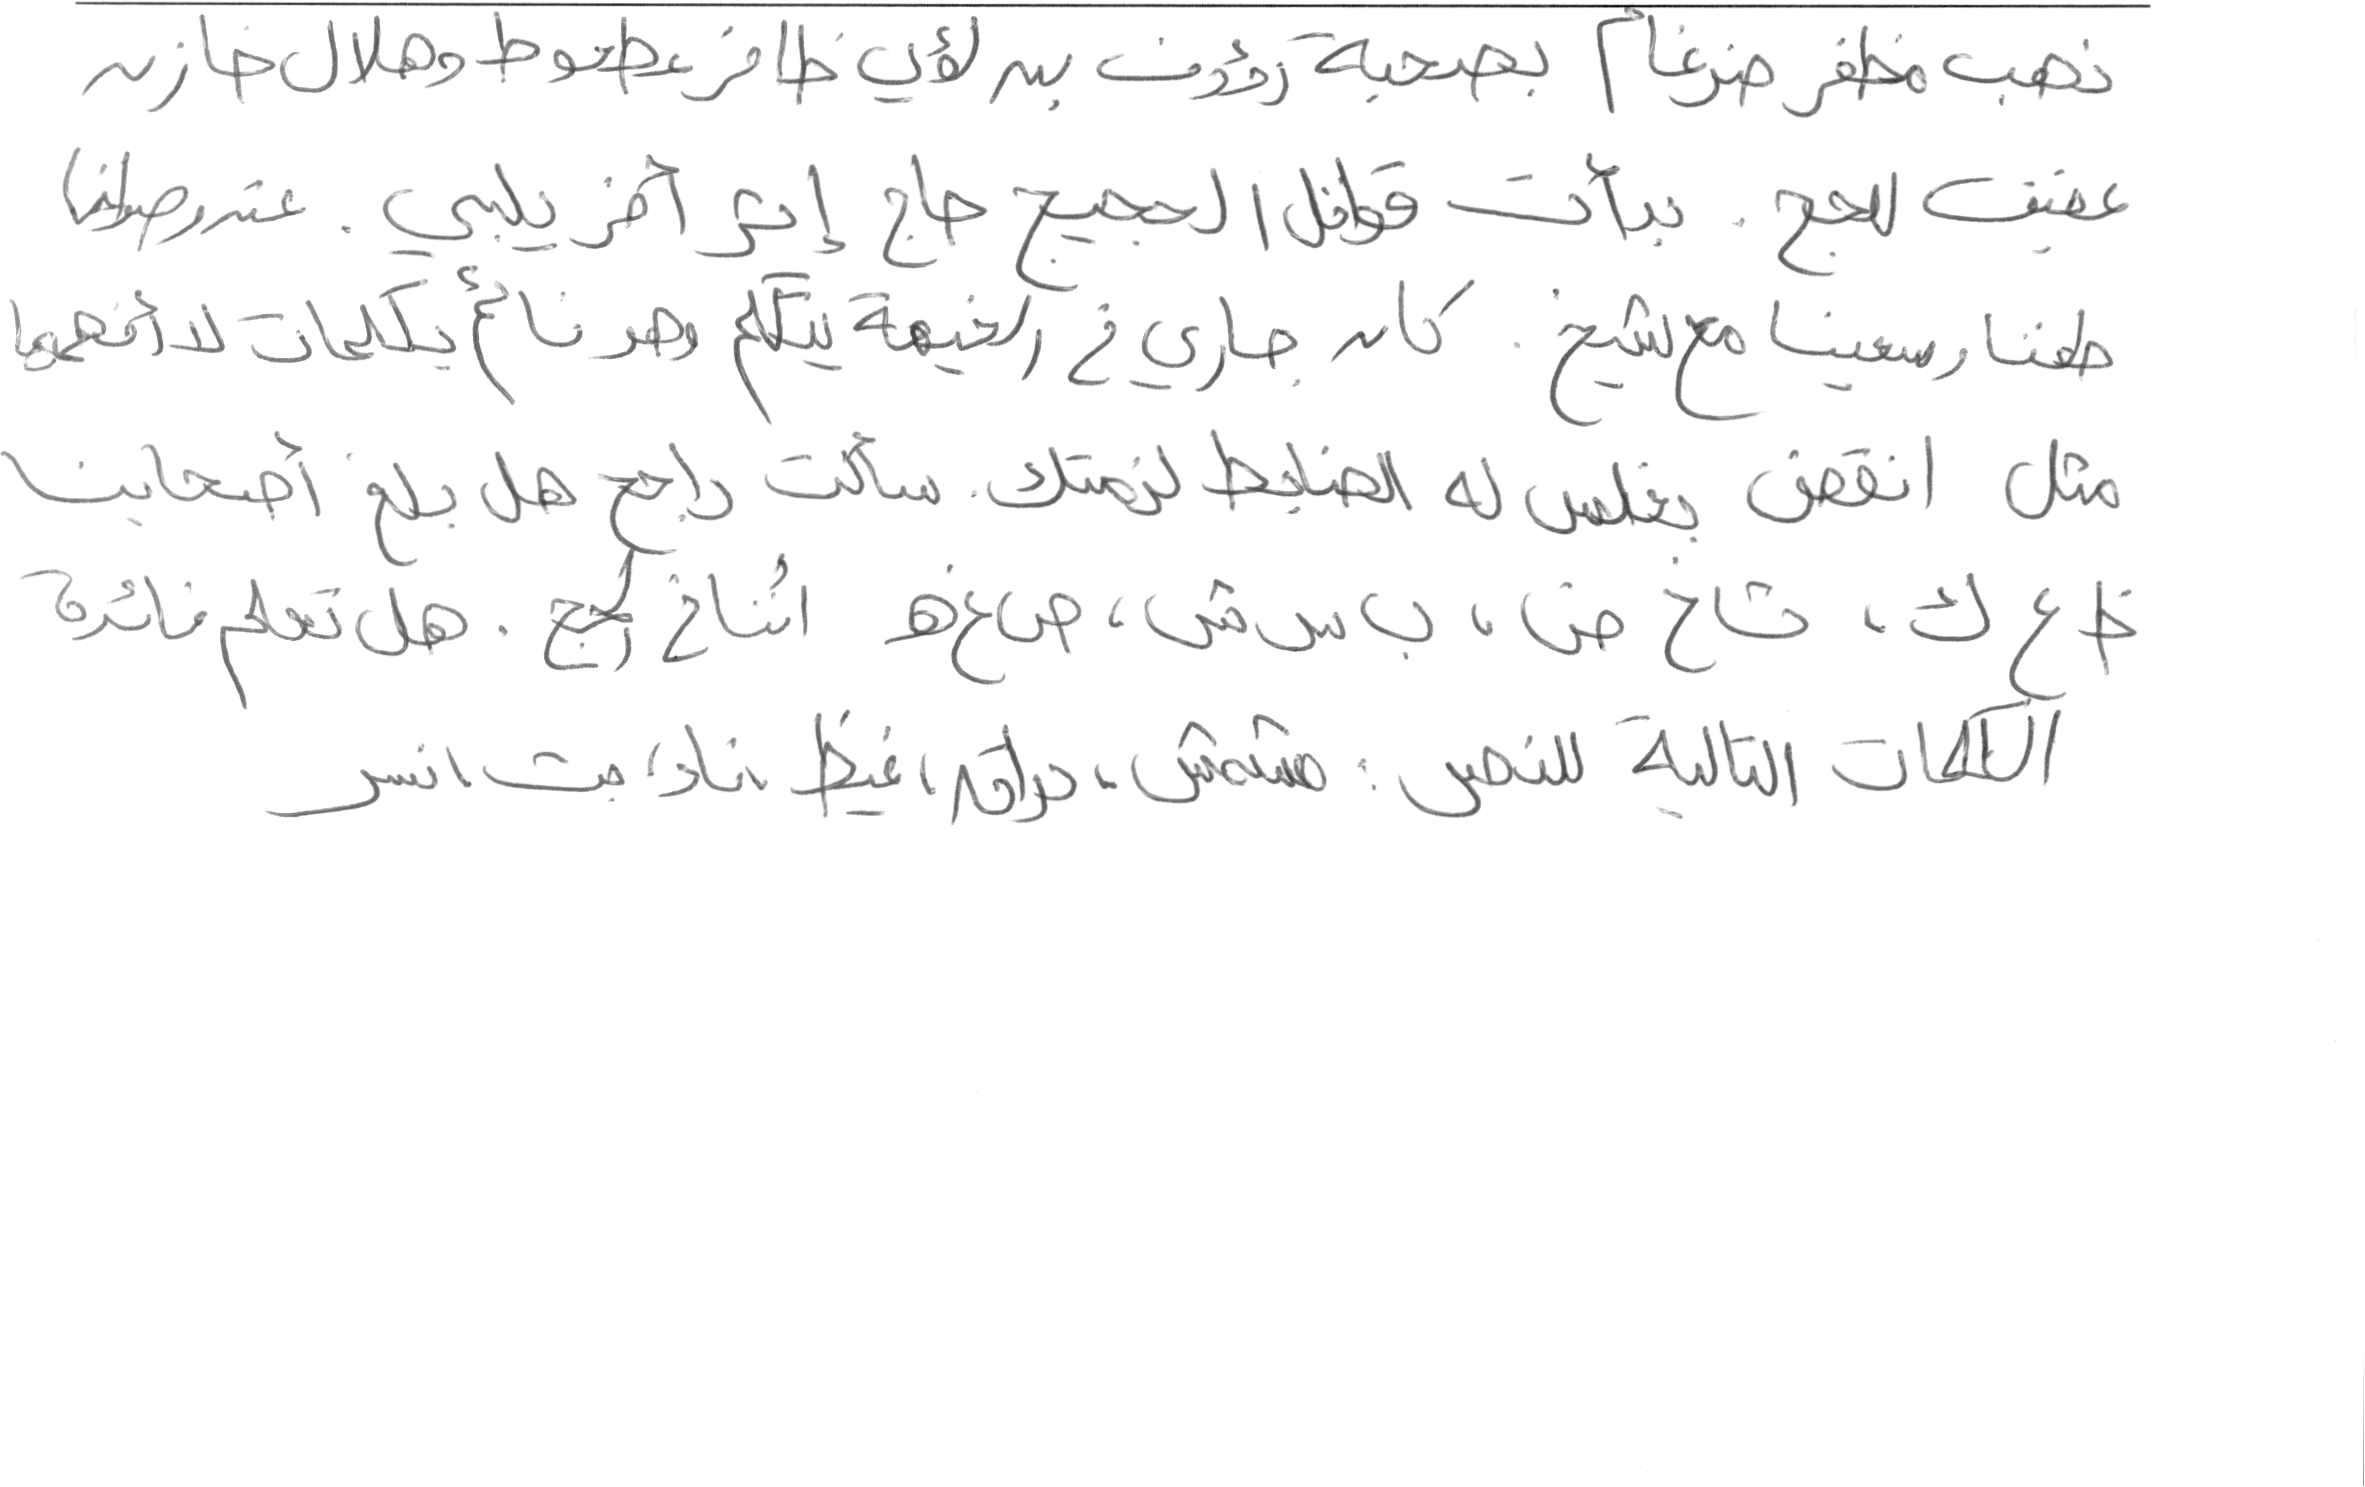 ذهب مظفر ضرغام بصحبة رؤوف بن لؤي ظافر عطعوط وهلال خازن
عفيف للحج. بدأت قوافل الحجيج حاج إثر آخر يلبي. عند وصولنا
طفنا وسعينا مع شيخ. كان جاري في الخيمة يتكلم وهو نائم بكلمات لا أفهمها
مثل انقض بغلس له الضابط لزمتك. سألت راجح هل بلغ أصحابك
ظ ع ك، شاخ ض، ب س ش، ص غ هـ اثناء الحج. هل تعلم فائدة
الكلمات التالية للنص: مشمش، دراق، غيظ، ناد، جث، نسر